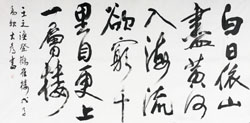 白日依山
盡黃河
入海流
欲窮千
里目更上
一層樓
王之渙登鸛雀樓
書